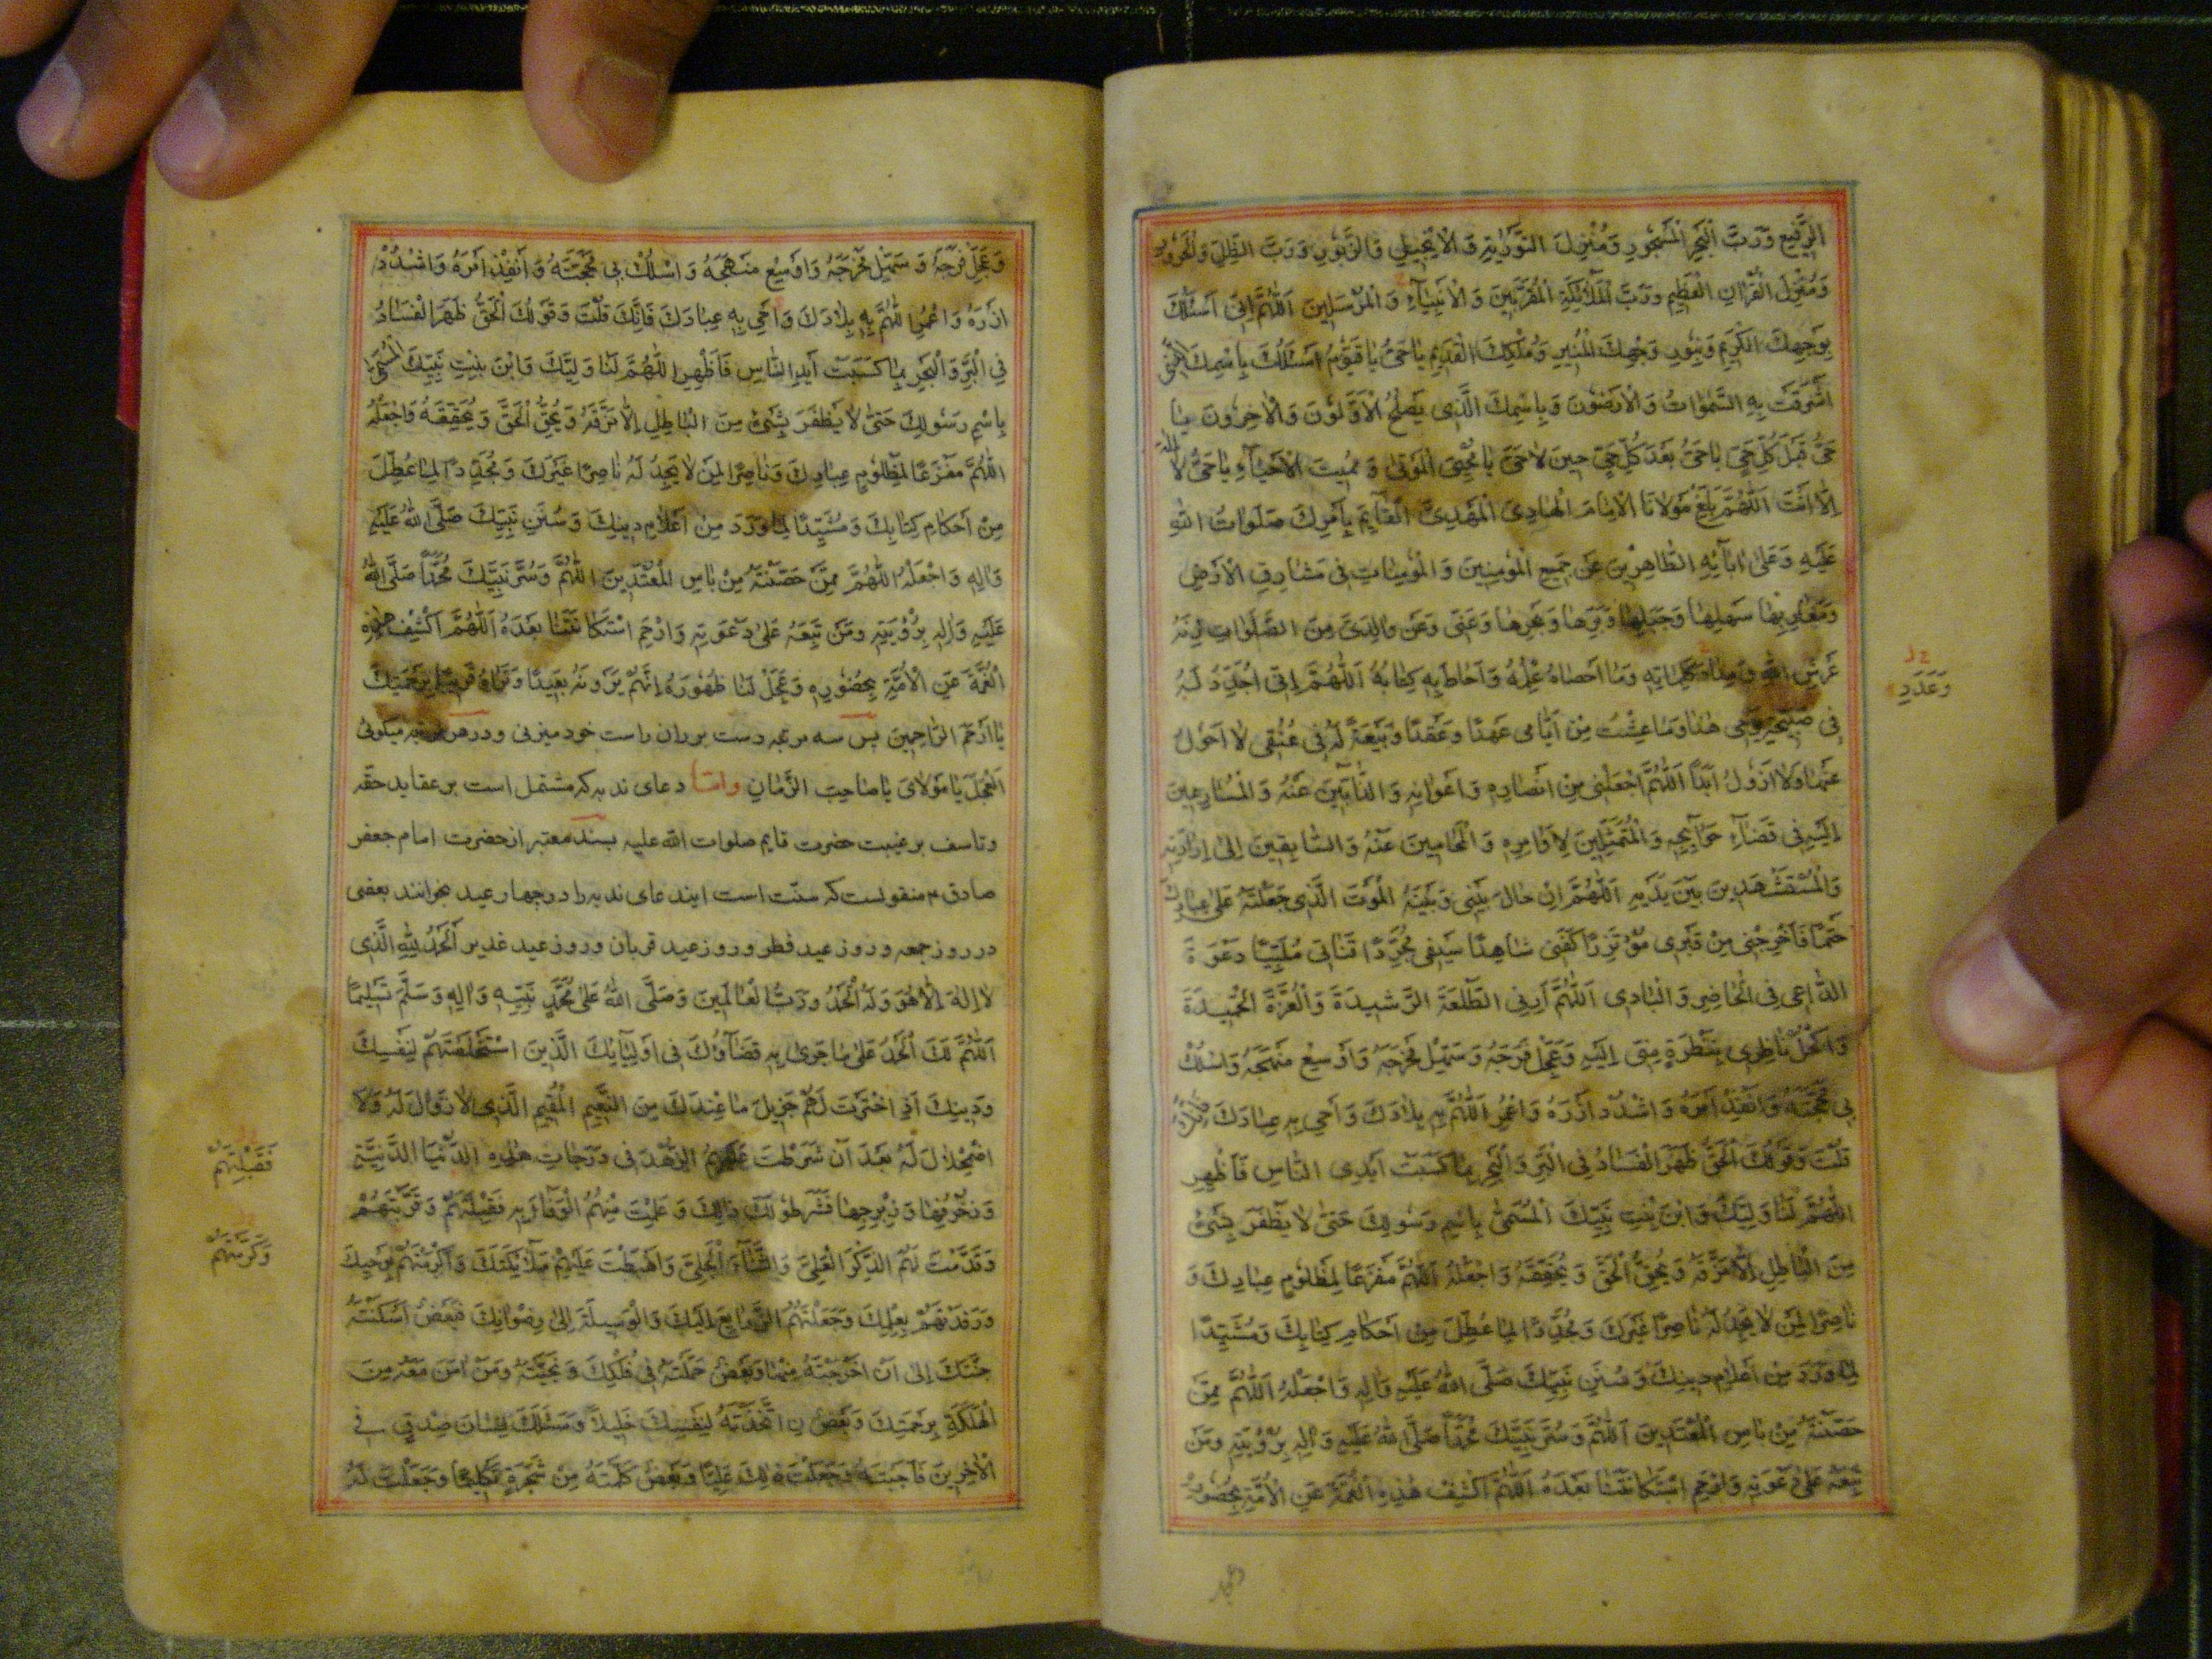 الرَّفِيعِ وَرَبَّ الْبَحْرِ الْمَسْجُورِ وَمُنْزِلَ التَّوْرٰيةِ وَالْاِنْجِيلِ وَالزَّبُورِ وَرَبَّ الظِّلِّ وَالْحَرُورِ
وَمُنْزِلَ الْقُرْاٰنِ الْعَظِيمِ وَرَبَّ الْمَلٰٓئِكَةِ الْمُقَرَّبِينَ وَالْاَنْبِيٰٓاءِ وَالْمُرْسَلِينَ اَللّٰهُمَّ اِنّى اَسْئَلُكَ
بِوَجْهِكَ الْكَرِيمِ وَبِنُورِ وَجْهِكَ الْمُنِيرِ وَمُلْكِكَ الْقَدِيمِ يٰا حَىُّ يٰا قَيُّومُ اَسْئَلُكَ بِاسْمِكَ الَّذى
اَشْرَقَتْ بِهِ السَّمٰوٰاتُ وَالْاَرَضُونَ وَبِاسْمِكَ الَّذى يَصْلَحُ بِهِ الْاَوَّلُونَ وَالْاٰخِرُونَ يٰا
حَىُّ قَبْلَ كُلِّ حَىٍّ يٰا حَىُّ بَعْدَ كُلِّ حَىٍّ حِينَ لٰا حَىَّ يٰا مُحْيِىَ الْمَوْتىٰ وَمُمِيتَ الْاَحْيٰٓاءِ يٰا حَىُّ لٰا اِلٰهَ
اِلّٰا اَنْتَ اَللّٰهُمَّ بَلِّغْ مَوْلٰانَا الْاِمٰامَ الْهٰادِىَ الْمَهْدِىَّ الْقٰٓائِمَ بِاَمْرِكَ صَلَوٰاتُ اللّٰهِ
عَلَيْهِ وَعَلىٰ اٰبٰٓائِهِ الطّٰاهِرِينَ عَنْ جَمِيعِ الْمُؤْمِنِينَ وَالْمُؤْمِنٰاتِ فى مَشٰارِقِ الْاَرْضِ
وَمَغٰارِبِهٰا سَهْلِهٰا وَجَبَلِهٰا وَبَرِّهٰا وَبَحْرِهٰا وَعَنّى وَعَنْ وٰالِدَىَّ مِنَ الصَّلَوٰاتِ زِنَةَ
عَرْشِ اللّٰهِ وَمِدٰادَ كَلِمٰاتِهِ وَمٰا اَحْصٰاهُ عِلْمُهُ وَاَحٰاطَ بِهِ كِتٰابُهُ اَللّٰهُمَّ اِنّى اُجَدِّدُ لَهُ
وَعَدَدِ
فى صَبِيحَةِ يَوْمى هٰذٰا وَمٰا عِشْتُ مِنْ اَيّٰامى عَهْدًا وَعَقْدًا وَبَيْعَةً لَهُ فى عُنُقى لٰا اَحُولُ
عَنْهٰا وَلٰا اَزُولُ اَبَدًا اَللّٰهُمَّ اجْعَلْنى مِنْ اَنْصٰارِهِ وَاَعْوٰانِهِ وَالذّٰابِّينَ عَنْهُ وَالْمُسٰارِعِينَ
اِلَيْهِ فى قَضٰٓاءِ حَوٰٓائِجِهِ وَالْمُمْتَثِلِينَ لِاَوٰامِرِهِ وَالْمُحٰامِينَ عَنْهُ وَالسّٰابِقِينَ اِلىٰ اِرٰادَتِهِ
وَالْمُسْتَشْهَدِينَ بَيْنَ يَدَيْهِ اَللّٰهُمَّ اِنْ حٰالَ بَيْنى وَبَيْنَهُ الْمَوْتُ الَّذى جَعَلْتَهُ عَلىٰ عِبٰادِكَ
حَتْمًا فَاَخْرِجْنى مِنْ قَبْرى مُؤْتَزِرًا كَفَنى شٰاهِرًا سَيْفى مُجَرِّدًا قَنٰاتى مُلَبِّيًا دَعْوَةَ
الدّٰاعى فى الْحٰاضِرِ وَالْبٰادى اَللّٰهُمَّ اَرِنى الطَّلْعَةَ الرَّشِيدَةَ وَالْغُرَّةَ الْحَمِيدَةَ
وَاكْحُلْ نٰاظِرى بِنَظْرَةٍ مِنّى اِلَيْهِ وَعَجِّلْ فَرَجَهُ وَسَهِّلْ مَخْرَجَهُ وَاَوْسِعْ مَنْهَجَهُ وَاسْلُكْ
بى مَحَجَّتَهُ وَاَنْفِذْ اَمْرَهُ وَاشْدُدْ اَزْرَهُ وَاعْمُرِ اللّٰهُمَّ بِهِ بِلٰادَكَ وَاَحْىِ بِهِ عِبٰادَكَ فَاِنَّكَ
قُلْتَ وَقَوْلُكَ الْحَقُّ ظَهَرَ الْفَسٰادُ فى الْبَرِّ وَالْبَحْرِ بِمٰا كَسَبَتْ اَيْدِى النّٰاسِ فَاَظْهِرِ
اللّٰهُمَّ لَنٰا وَلِيَّكَ وَابْنَ بِنْتِ نَبِيِّكَ الْمُسَمّىٰ بِاسْمِ رَسُولِكَ حَتّىٰ لٰا يَظْفَرَ بِشَىْءٍ
مِنَ الْبٰاطِلِ اِلّٰا مَزَّقَهُ وَيُحِقَّ الْحَقَّ وَيُحَقِّقَهُ وَاجْعَلْهُ اَللّٰهُمَّ مَفْزَعًا لِمَظْلُومِ عِبٰادِكَ وَ
نٰاصِرًا لِمَنْ لٰا يَجِدُ لَهُ نٰاصِرًا غَيْرَكَ وَمُجَدِّدًا لِمٰا عُطِّلَ مِنْ اَحْكٰامِ كِتٰابِكَ وَمُشَيِّدًا
لِمٰا وَرَدَ مِنْ اَعْلٰامِ دِينِكَ وَسُنَنِ نَبِيِّكَ صَلَّى اللّٰهُ عَلَيْهِ وَاٰلِهِ وَاجْعَلْهُ اَللّٰهُمَّ مِمَّنْ
حَصَّنْتَهُ مِنْ بَاْسِ الْمُعْتَدِينَ اَللّٰهُمَّ وَسُرَّ نَبِيَّكَ مُحَمَّدًا صَلَّى اللّٰهُ عَلَيْهِ وَاٰلِهِ بِرُؤْيَتِهِ وَمَنْ
تَبِعَهُ عَلىٰ دَعْوَتِهِ وَارْحَمِ اسْتِكٰانَتَنٰا بَعْدَهُ اَللّٰهُمَّ اكْشِفْ هٰذِهِ الْغُمَّةَ عَنِ الْاُمَّةِ بِحُضُورِهِ
وَعَجِّلْ فَرَجَهُ وَسَهِّلْ مَخْرَجَهُ وَاَوْسِعْ مَنْهَجَهُ وَاسْلُكْ بى مَحَجَّتَهُ وَاَنْفِذْ اَمْرَهُ وَاشْدُدْ
اَزْرَهُ وَاعْمُرِ اللّٰهُمَّ بِهِ بِلٰادَكَ وَاَحْىِ بِهِ عِبٰادَكَ فَاِنَّكَ قُلْتَ وَقَوْلُكَ الْحَقُّ ظَهَرَ الْفَسٰادُ
فِى الْبَرِّ وَالْبَحْرِ بِمٰا كَسَبَتْ اَيْدِى النّٰاسِ فَاَظْهِرِ اللّٰهُمَّ لَنٰا وَلِيَّكَ وَابْنَ بِنْتِ نَبِيِّكَ الْمُسَمّىٰ
بِاسْمِ رَسُولِكَ حَتّىٰ لٰا يَظْفَرَ بِشَىْءٍ مِنَ الْبٰاطِلِ اِلّٰا مَزَّقَهُ وَيُحِقَّ الْحَقَّ وَيُحَقِّقَهُ وَاجْعَلْهُ
اللّٰهُمَّ مَفْزَعًا لِمَظْلُومِ عِبٰادِكَ وَنٰاصِرًا لِمَنْ لٰا يَجِدُ لَهُ نٰاصِرًا غَيْرَكَ وَمُجَدِّدًا لِمٰا عُطِّلَ
مِنْ اَحْكٰامِ كِتٰابِكَ وَمُشَيِّدًا لِمٰا وَرَدَ مِنْ اَعْلٰامِ دِينِكَ وَسُنَنِ نَبِيِّكَ صَلَّى اللّٰهُ عَلَيْهِ
وَاٰلِهِ وَاجْعَلْهُ اللّٰهُمَّ مِمَّنْ حَصَّنْتَهُ مِنْ بَاْسِ الْمُعْتَدِينَ اللّٰهُمَّ وَسُرَّ نَبِيَّكَ مُحَمَّدًا صَلَّى اللّٰهُ
عَلَيْهِ وَاٰلِهِ بِرُؤْيَتِهِ وَمَنْ تَبِعَهُ عَلىٰ دَعْوَتِهِ وَارْحَمِ اسْتِكٰانَتَنٰا بَعْدَهُ اَللّٰهُمَّ اكْشِفْ هٰذِهِ
الْغُمَّةَ عَنِ الْاُمَّةِ بِحُضُورِهِ وَعَجِّلْ لَنٰا ظُهُورَهُ اِنَّهُمْ يَرَوْنَهُ بَعِيدًا وَنَرٰاهُ قَرِيبًا بِرَحْمَتِكَ
يٰا اَرْحَمَ الرّٰاحِمِينَ پس سه مرتبه دست بر ران راست خود میزنی و در هر مرتبه میگوئی
اَلْعَجَلَ يٰا مَوْلٰاىَ يٰا صٰاحِبَ الزَّمٰانِ واما دعای ندبه که مشتمل است بر عقاید حقه
وتاسف بر غیبت حضرت قایم صلوات الله علیه بسند معتبر از حضرت امام جعفر
صادق م منقولست که سنّت است ایندعای ندبه را در چهار عید بخوانند یعنی
در روز جمعه و روز عید فطر و روز عید قربان و روز عید غدیر اَلْحَمْدُ لِلّٰهِ الَّذى
لٰا اِلٰهَ اِلّٰا هُوَ وَلَهُ الْحَمْدُ وَرَبُّ الْعٰالَمِينَ وَصَلَّى اللّٰهُ عَلىٰ مُحَمَّدٍ نَبِيِّهِ وَاٰلِهِ وَسَلَّمَ تَسْلِيمًا
اَللّٰهُمَّ لَكَ الْحَمْدُ عَلىٰ مٰا جَرىٰ بِهِ قَضٰٓاؤُكَ فى اَوْلِيٰٓائِكَ الَّذِينَ اسْتَخْلَصْتَهُمْ لِنَفْسِكَ
وَدِينِكَ اِذِ اخْتَرْتَ لَهُمْ جَزِيلَ مٰا عِنْدَكَ مِنَ النَّعِيمِ الْمُقِيمِ الَّذى لٰا زَوٰالَ لَهُ وَلَا
اضْمِحْلٰالَ لَهُ بَعْدَ اَنْ شَرَطْتَ عَلَيْهِمُ الزُّهْدَ فى دَرَجٰاتِ هٰذِهِ الدُّنْيَا الدَّنِيَّةِ
وَزُخْرُفِهٰا وَزِبْرِجِهٰا فَشَرَطُوا لَكَ ذٰلِكَ وَعَلِمْتَ مِنْهُمُ الْوَفٰاءَ بِهِ فَقَبِلْتَهُمْ وَقَرَّبْتَهُمْ
فَفَضَّلْتَهُمْ
وَقَدَّمْتَ لَهُمُ الذِّكْرَ الْعَلِىَّ وَالثَّنٰٓاءَ الْجَلِىَّ وَاَهْبَطْتَ عَلَيْهِمْ مَلٰٓائِكَتَكَ وَاَكْرَمْتَهُمْ بِوَحْيِكَ
وَكَرَّمْتَهُمْ
وَرَفَدْتَهُمْ بِعِلْمِكَ وَجَعَلْتَهُمُ الذَّرٰايِعَ اِلَيْكَ وَالْوَسِيلَةَ اِلىٰ رِضْوٰانِكَ فَبَعْضٌ اَسْكَنْتَهُ
جَنَّتَكَ اِلىٰ اَنْ اَخْرَجْتَهُ مِنْهٰا وَبَعْضٌ حَمَلْتَهُ فى فُلْكِكَ وَنَجَّيْتَهُ وَمَنْ اٰمَنَ مَعَهُ مِنَ
الْهَلَكَةِ بِرَحْمَتِكَ وَبَعْضٌ نِ اتَّخَذْتَهُ لِنَفْسِكَ خَلِيلًا وَسَئَلَكَ لِسٰانَ صِدْقٍ فى
الْاٰخِرِينَ فَاَجَبْتَهُ وَجَعَلْتَ ذٰلِكَ عَلِيًّا وَبَعْضٌ كَلَّمْتَهُ مِنْ شَجَرَةٍ تَكْلِيمًا وَجَعَلْتَ لَهُ